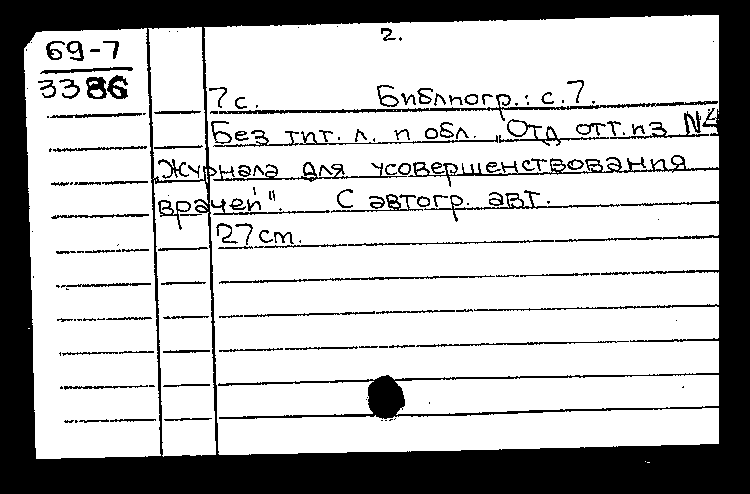 2.
69-7
3386
7с. Библиогр.: с.7.
Без тит. л. и обл. „Отд отт. из №4
„Журнала для усовершенствования
врачей". С автогр. авт.
27cm.